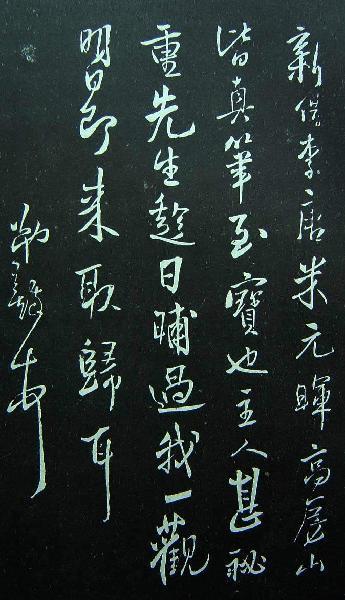 新借李唐米元暉高房山
皆真筆至寶也主人甚秘
重先生趁日晡過我一觀
明日即来取歸耳